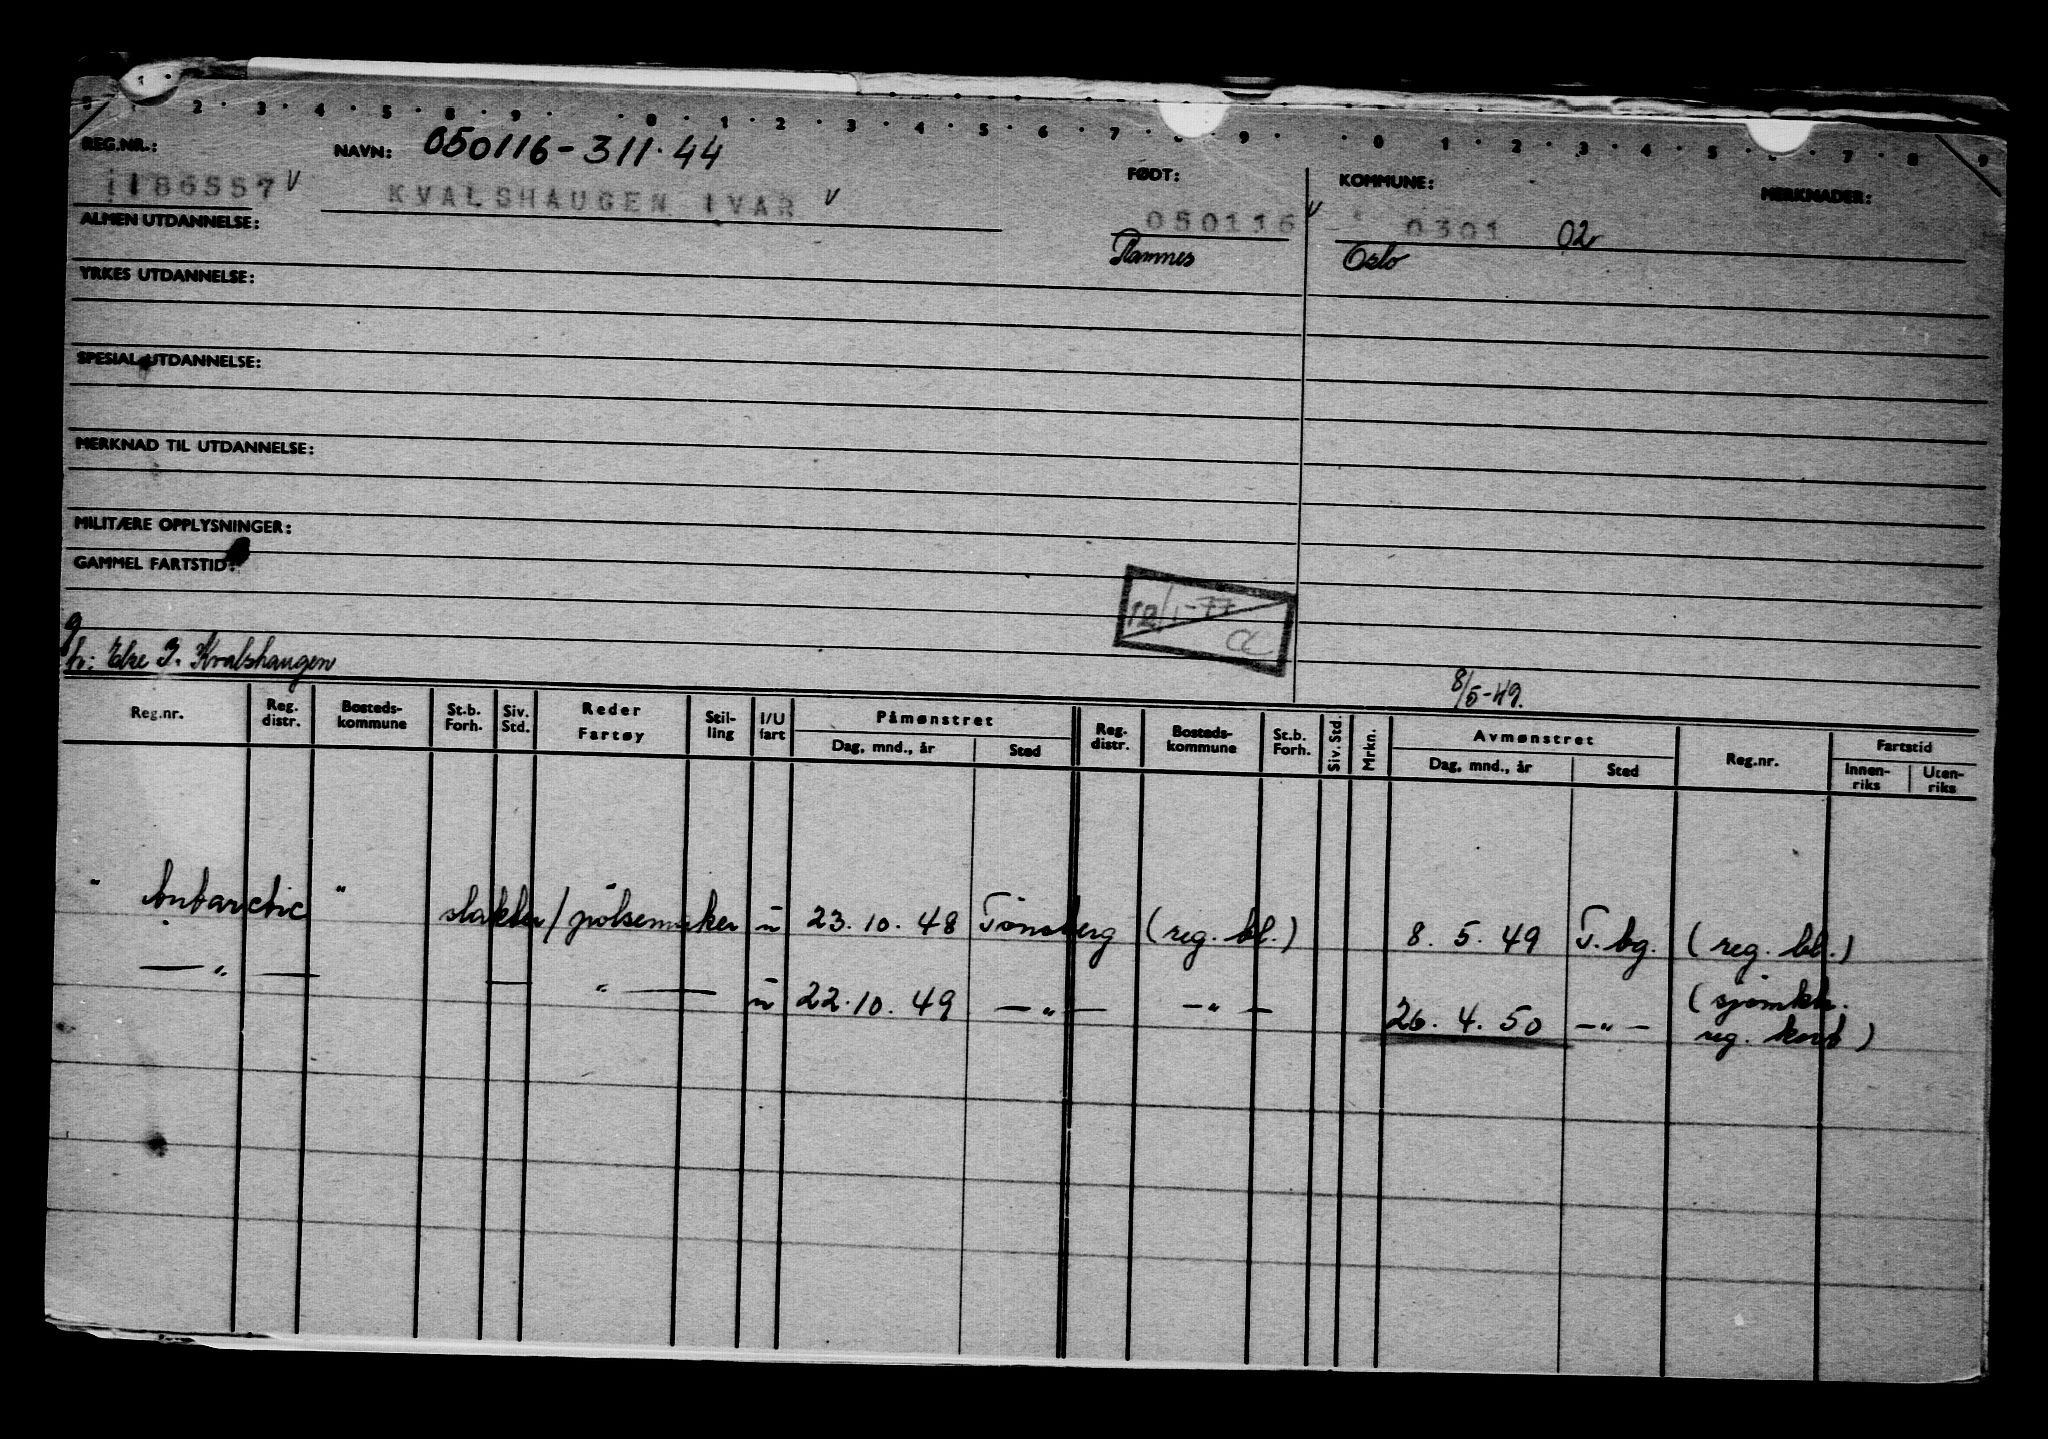 1 · 2 · 3 · 4 · 5 · 8 · 9 · · 0 · 1 · 2 · 3 · 4 · 5 · 6 · 7 · 8 · 9 · · 0 · 1 · 2 · 3 · 4 · 5 · 6 · 7 · 8 · 9
REG.NR.: NAVN: 050116-311.44 FØDT: KOMMUNE: MERKNADER:
1186557 V KVALSHAUGEN IVAR V 050116 V 0301 02
ALMEN UTDANNELSE: Ramnes Oslo
YRKES UTDANNELSE:
SPESIAL UTDANNELSE:
MERKNAD TIL UTDANNELSE:
MILITÆRE OPPLYSNINGER:
GAMMEL FARTSTID:
12/1-77
a
g
h: Else J. Kvalshaugen
8/5-49.
Reg.nr. Reg. distr. Bosteds-kommune St.b. Forh. Siv. Std. Reder Fartøy Stil-ling I/U fart Påmønstret Reg. distr. Bosteds-kommune St.b. Forh. Siv. Std. Mrkn. Avmønstret Reg.nr. Fartstid
Dag, mnd., år Sted Dag, mnd., år Sted Innen-riks Uten-riks
" Antarctic " slakter/pølsemaker u 23.10.48 Tønsberg (reg. bl.) 8.5.49 T.bg. (reg. bl.)
—"— — " — u 22.10.49 —"— —"— 26.4.50 —"— (sjømkk.
reg. kort)